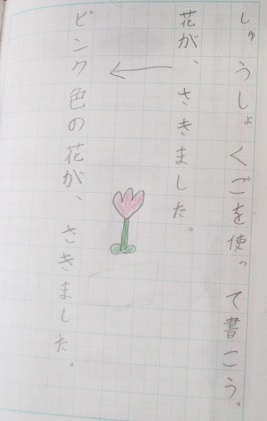 しゅうしょくごを使って書こう。
花が、さきました。
ピンク色の花が、さきました。